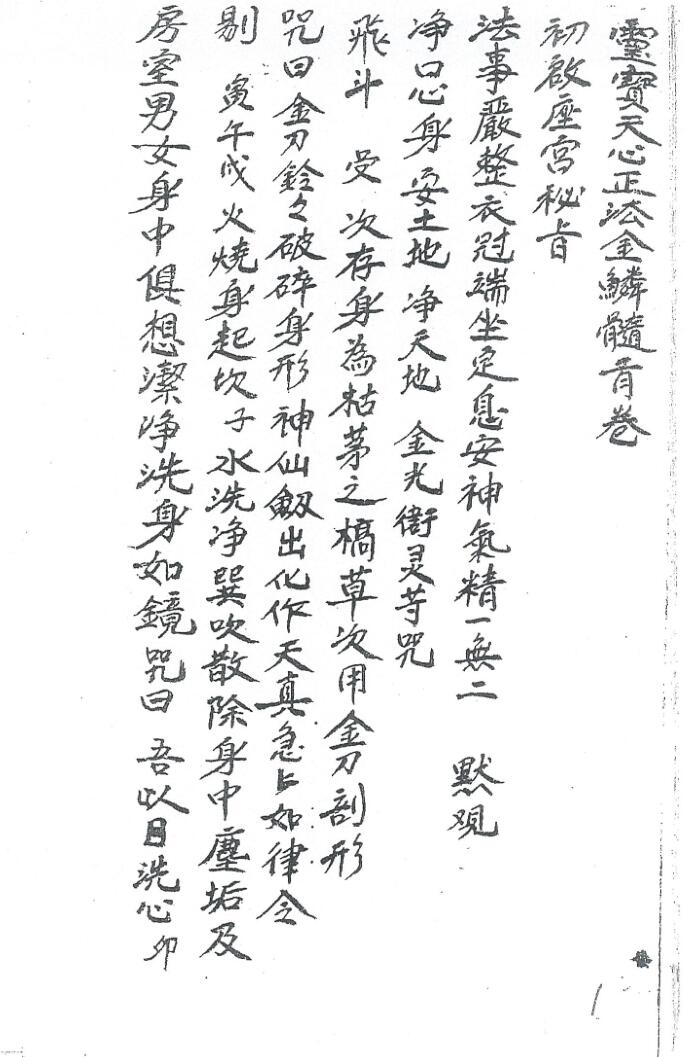 靈寶天心正法金鱗髓育卷
初啟座宮秘旨
法事嚴整衣冠端坐定息安神氣精一無二 默观
净口心身安土地 净天地 金光衛灵等咒
飛斗 受 次存身為枯茅之槁草次用金刀剖形
咒曰金刀鈴々破碎身形神仙劔出化作天真急々如律令
剔 寅午戌火燒身起坎子水洗净巽吹散除身中塵垢及
房室男女身中俱想潔净洗身如鏡咒曰 吾以日洗心 卯
1